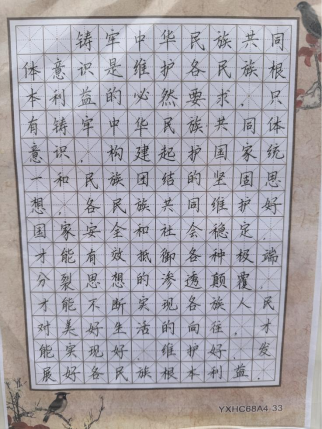 铸牢中华民族共同
体意识是维护各民族根
本利益的必然要求.只
有铸牢中华民族共同体
意识.构建起护国家统
一和民族团结的坚固思
想.各民族共同维护好
国家安全和社会稳定.
才能有效抵御各种极端.
分裂思想的渗透颠覆.
才能不断实现各族人民
对美好生活的向往.才
能实现好.维护好.发
展好各民族根本利益.
YXHC68A4-33